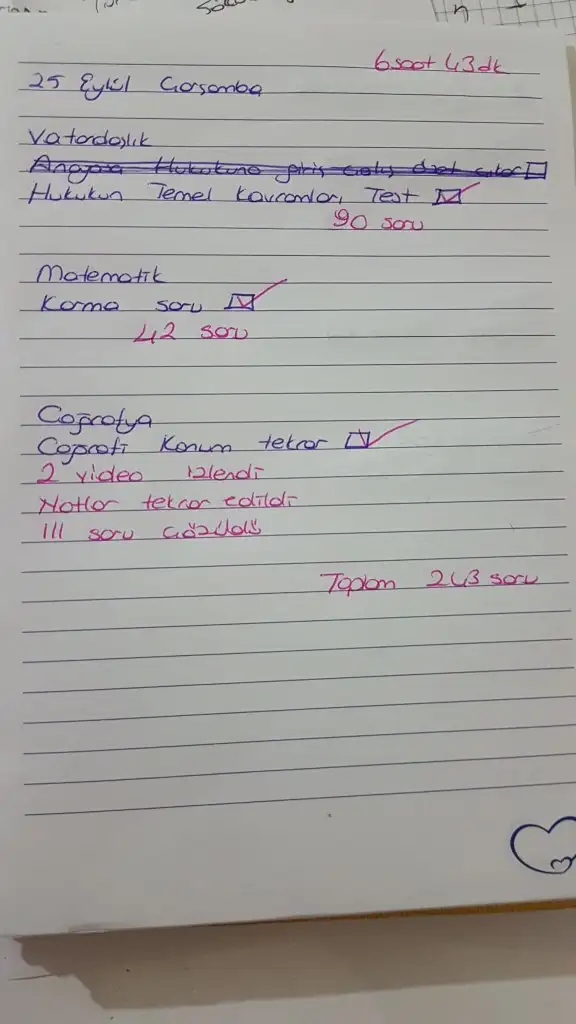 6 saat 43 dk
25 Eylül Çarşamba
Vatandaşlık
Anayasa Hukukuna giriş çalış özet çıkar
Hukukun Temel Kavramları Test
90 soru
Matematik
Karma soru
42 soru
Coğrafya
Coğrafi Konum tekrar
2 video izlendi
Notlar tekrar edildi
111 soru çözüldü
Toplam 243 soru